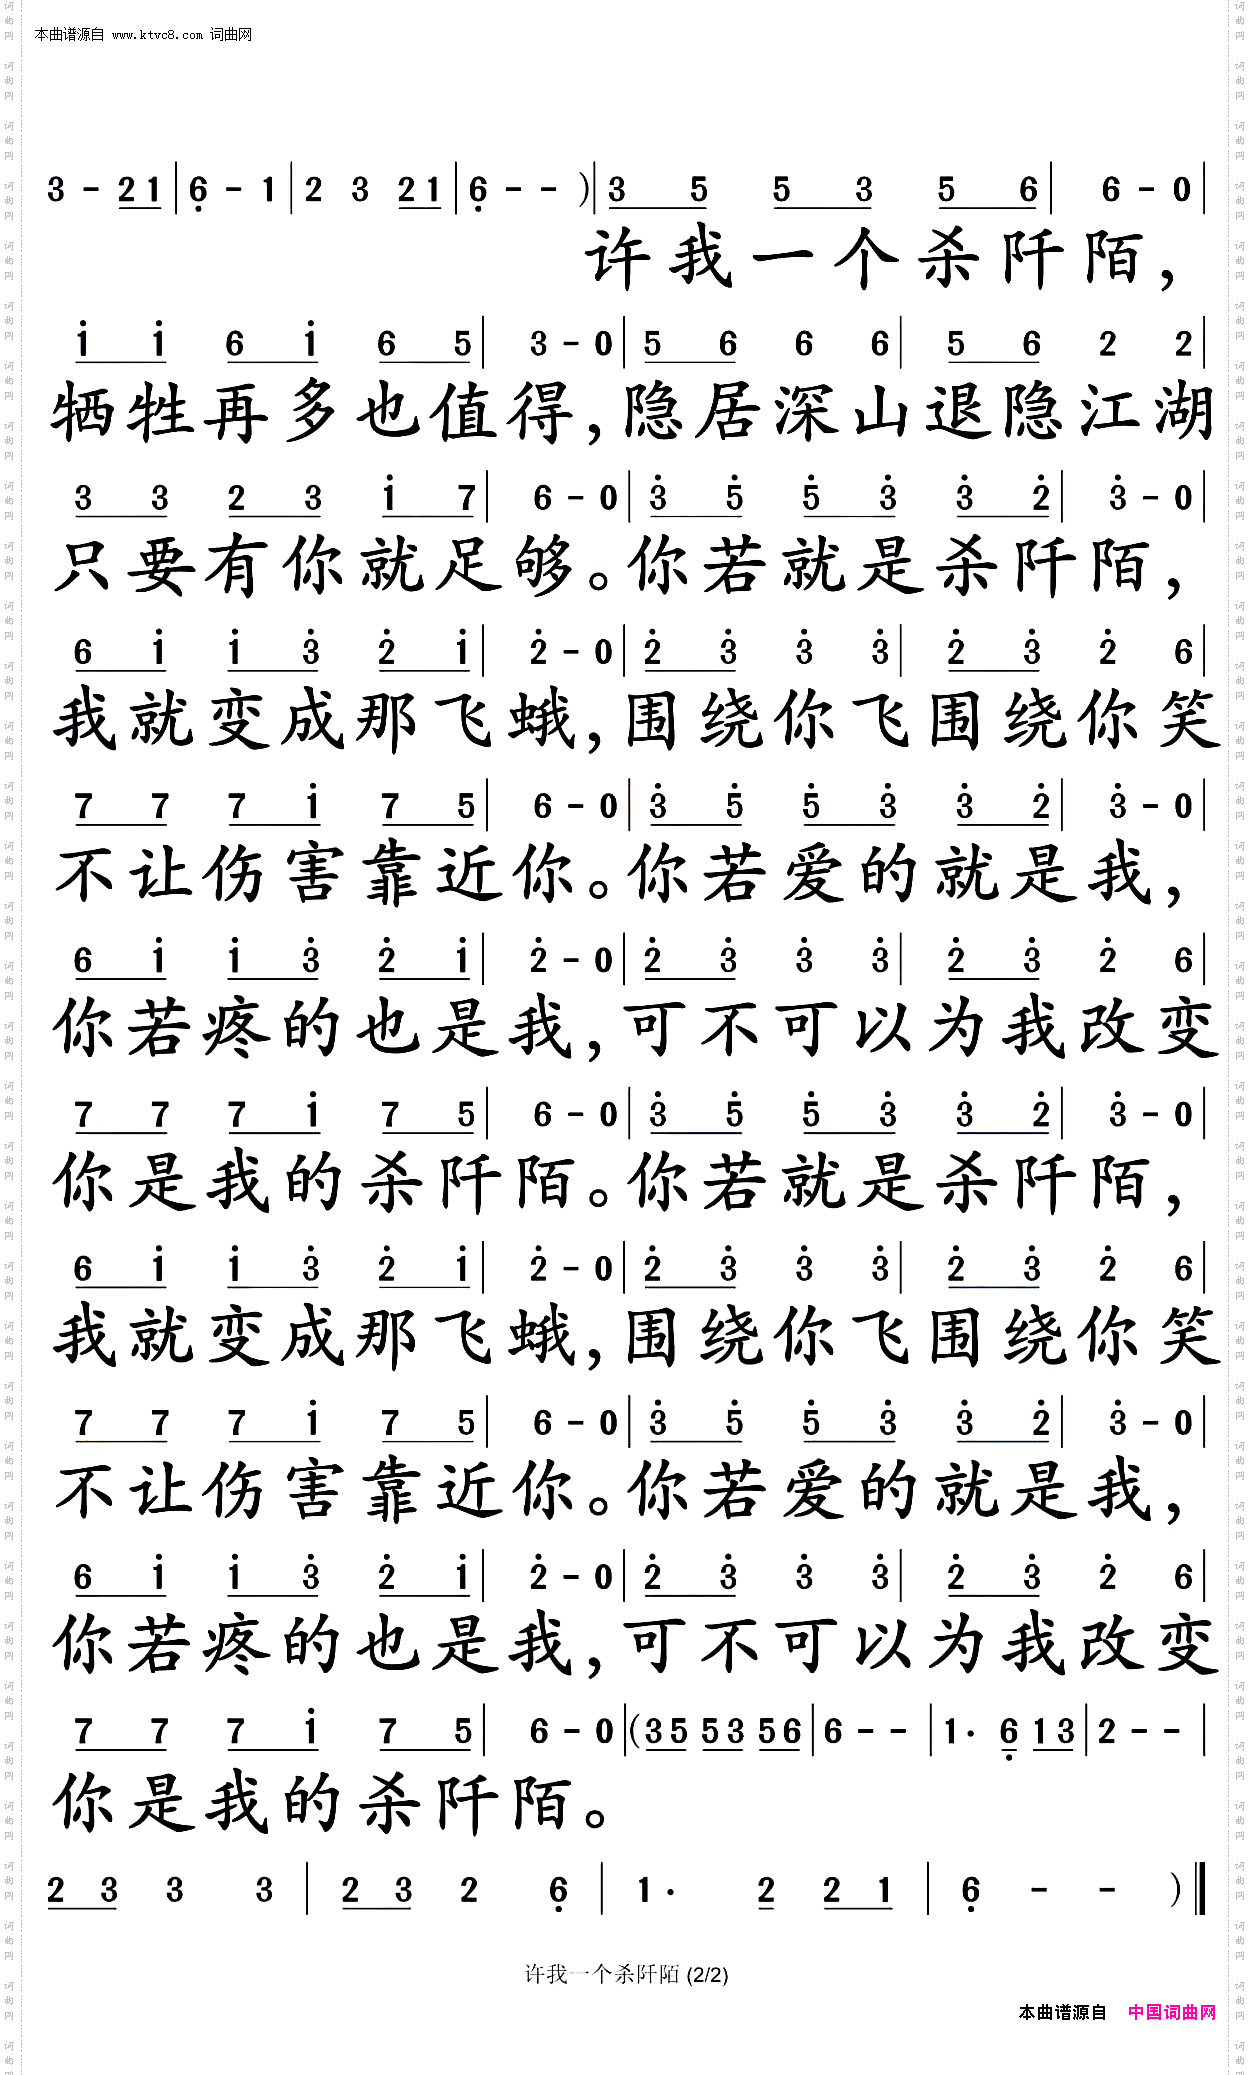 本曲谱源自 www.ktvc8.com 词曲网
3 - 2 1 | 6 - 1 | 2 3 2 1 | 6 - - ) | 3 5 5 3 5 6 | 6 - 0 |
许我一个杀阡陌，
1 1 6 1 6 5 | 3 - 0 | 5 6 6 6 | 5 6 2 2 |
牺牲再多也值得，隐居深山退隐江湖
3 3 2 3 1 7 | 6 - 0 | 3 5 5 3 3 2 | 3 - 0 |
只要有你就足够。你若就是杀阡陌，
6 1 1 3 2 1 | 2 - 0 | 2 3 3 3 | 2 3 2 6 |
我就变成那飞蛾，围绕你飞围绕你笑
7 7 7 1 7 5 | 6 - 0 | 3 5 5 3 3 2 | 3 - 0 |
不让伤害靠近你。你若爱的就是我，
6 1 1 3 2 1 | 2 - 0 | 2 3 3 3 | 2 3 2 6 |
你若疼的也是我，可不可以为我改变
7 7 7 1 7 5 | 6 - 0 | 3 5 5 3 3 2 | 3 - 0 |
你是我的杀阡陌。你若就是杀阡陌，
6 1 1 3 2 1 | 2 - 0 | 2 3 3 3 | 2 3 2 6 |
我就变成那飞蛾，围绕你飞围绕你笑
7 7 7 1 7 5 | 6 - 0 | 3 5 5 3 3 2 | 3 - 0 |
不让伤害靠近你。你若爱的就是我，
6 1 1 3 2 1 | 2 - 0 | 2 3 3 3 | 2 3 2 6 |
你若疼的也是我，可不可以为我改变
7 7 7 1 7 5 | 6 - 0 | ( 3 5 5 3 5 6 | 6 - - | 1 · 6 1 3 | 2 - - |
你是我的杀阡陌。
2 3 3 3 | 2 3 2 6 | 1 · 2 2 1 | 6 - - ) ‖
许我一个杀阡陌 (2/2)
本曲谱源自 中国词曲网